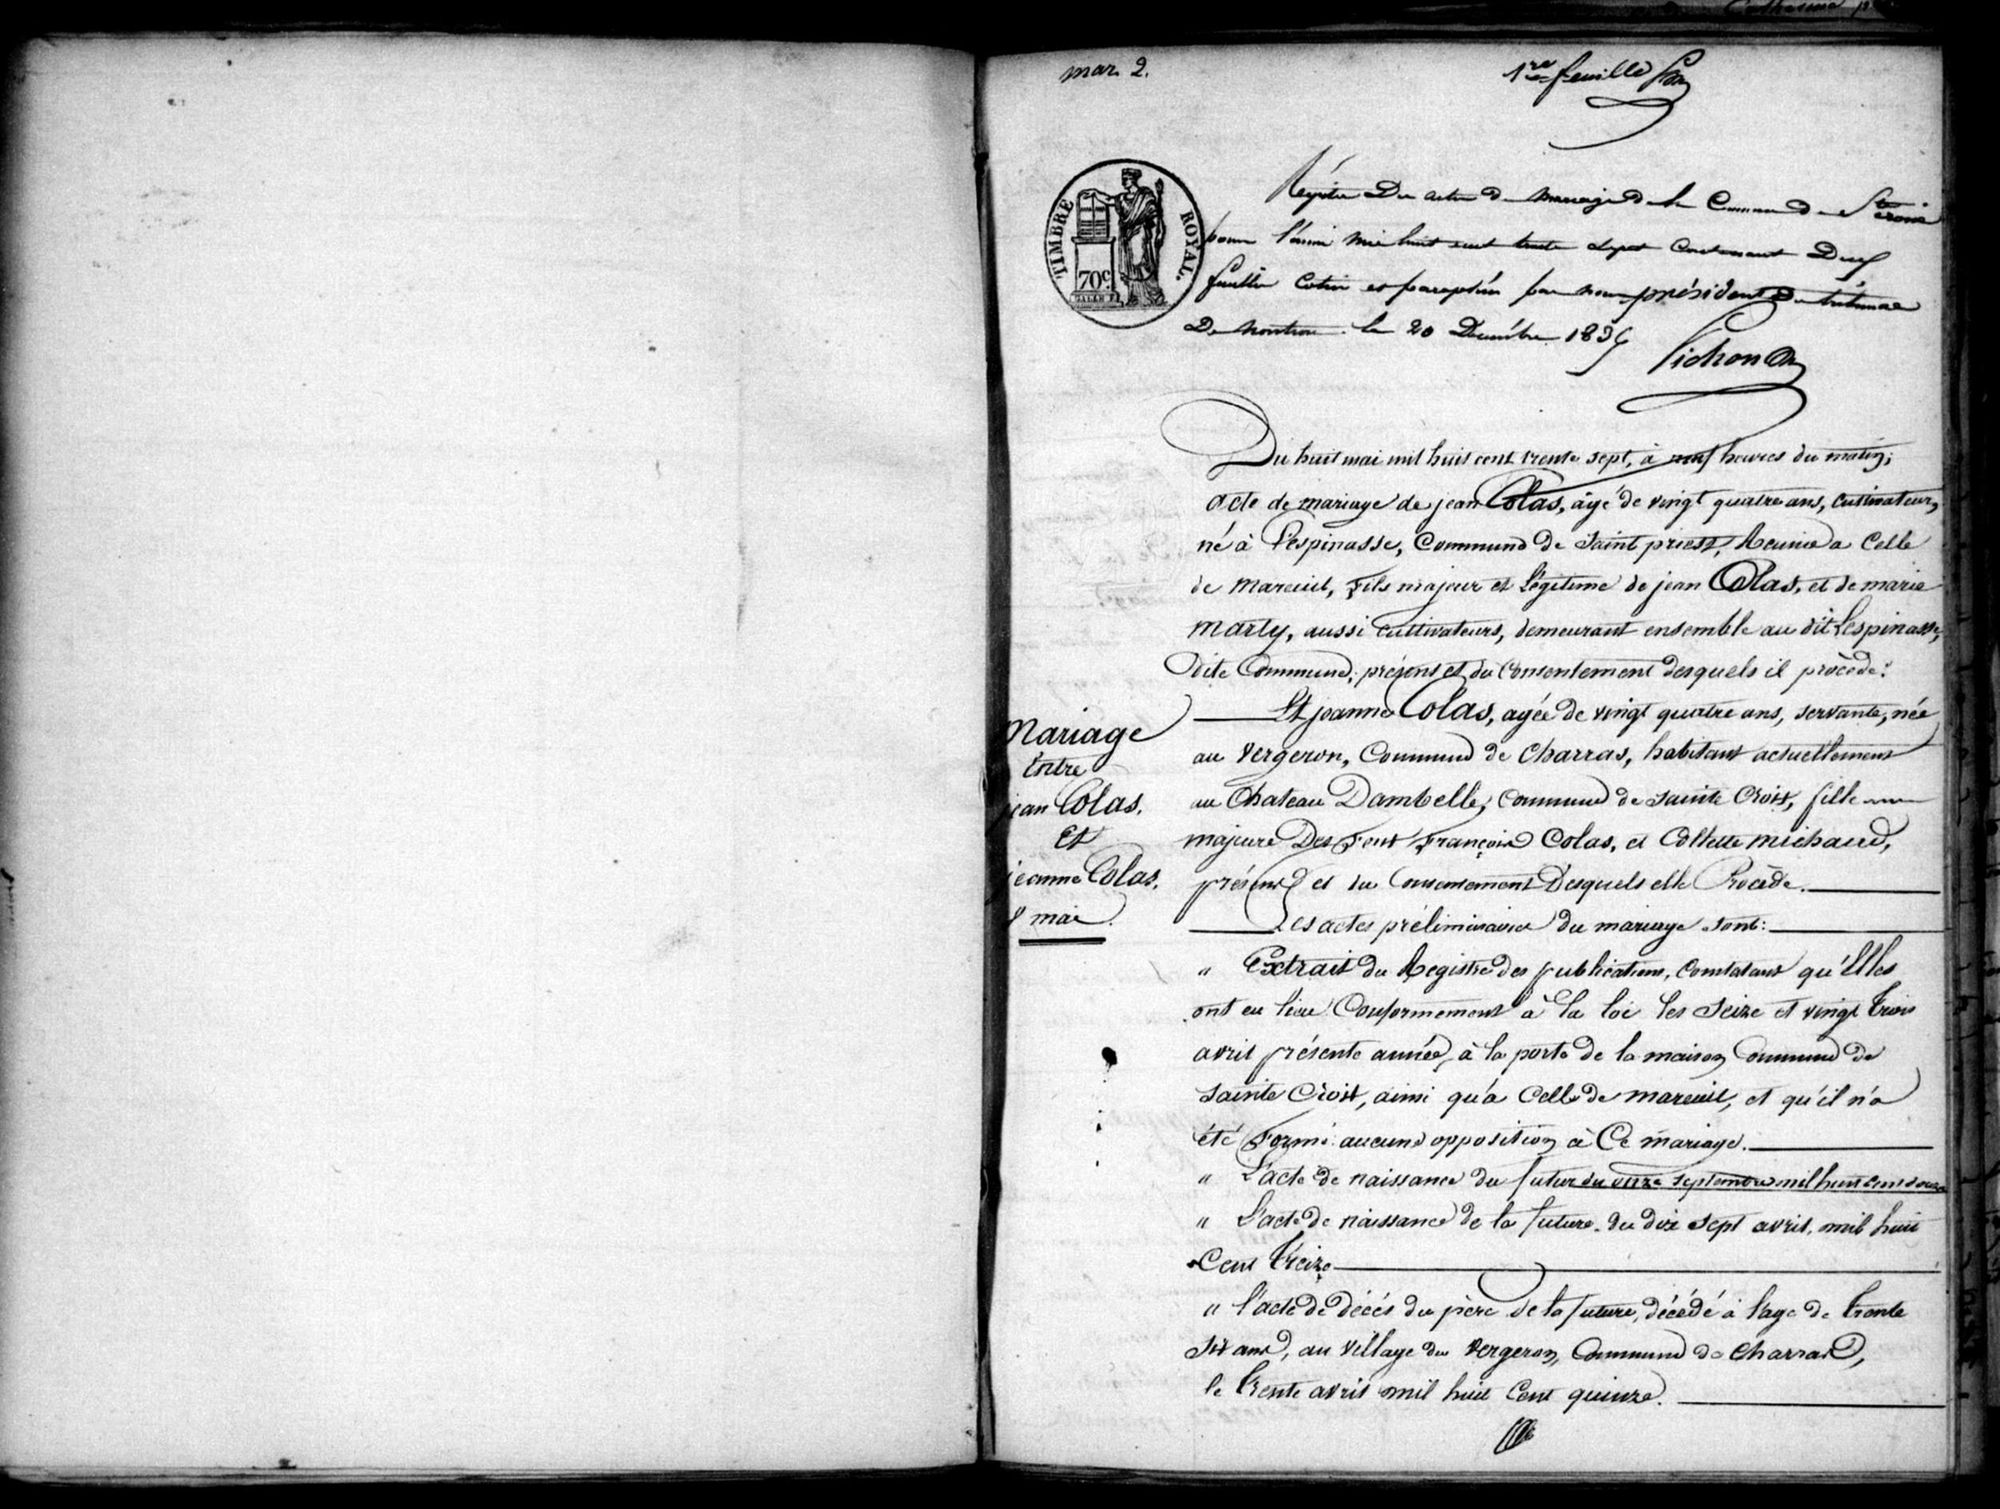 mar. 2.
1re feuille
TIMBRE ROYAL.
70c
Régistre Des actes de mariage de la Commune de Ste Croix
pour l'année mil huit cent trente sept Contenant Dix
feuilles Cotées et paraphées par nous président du tribunal
De Nontron. le 20 Décembre 1836
Pichon
Du huit mai mil huit cent trente sept, à neuf heures du matin;
acte de mariage de jean Colas, âgé de vingt quatre ans, cultivateur,
né à Lespinasse, Commune de Saint priest, Reunie a Celle
de Mareuil, fils majeur et Légitime de jean Colas, et de marie
Marty, aussi cultivateurs, demeurant ensemble au dit Lespinasse,
dite Commune, présens et du Consentement desquels il procède:
Et jeanne Colas, agée de vingt quatre ans, servante, née
au Vergeron, Commune de Charras, habitant actuellement
au Chateau Dambelle, Commune de Sainte Croix, fille
majeure Des Feut François Colas, et Collette Michaud,
présens et du Consentement Desquels elle Procède.
Mariage
Entre
jean Colas.
Et
jeanne Colas.
8 mai.
Les actes préliminaires du mariage sont:
" Extrait du Registre des publications, constatant qu'Elles
ont eu lieu Conformement à la loi les seize et vingt trois
avril présente année, à la porte de la maison Commune de
Sainte Croix, ainsi qu'à Celle de Mareuil, et qu'il n'a
été Formé aucune opposition à Ce mariage.
" L'acte de naissance du futur du onze septembre mil huit cent douze
" L'acte de naissance de la future. du dix sept avril, mil huit
Cent Treize
" l'acte de décés du père de la future, décédé à l'age de trente
six ans, au village du Vergeron, Commune de Charras,
le trente avril mil huit Cent quinze.